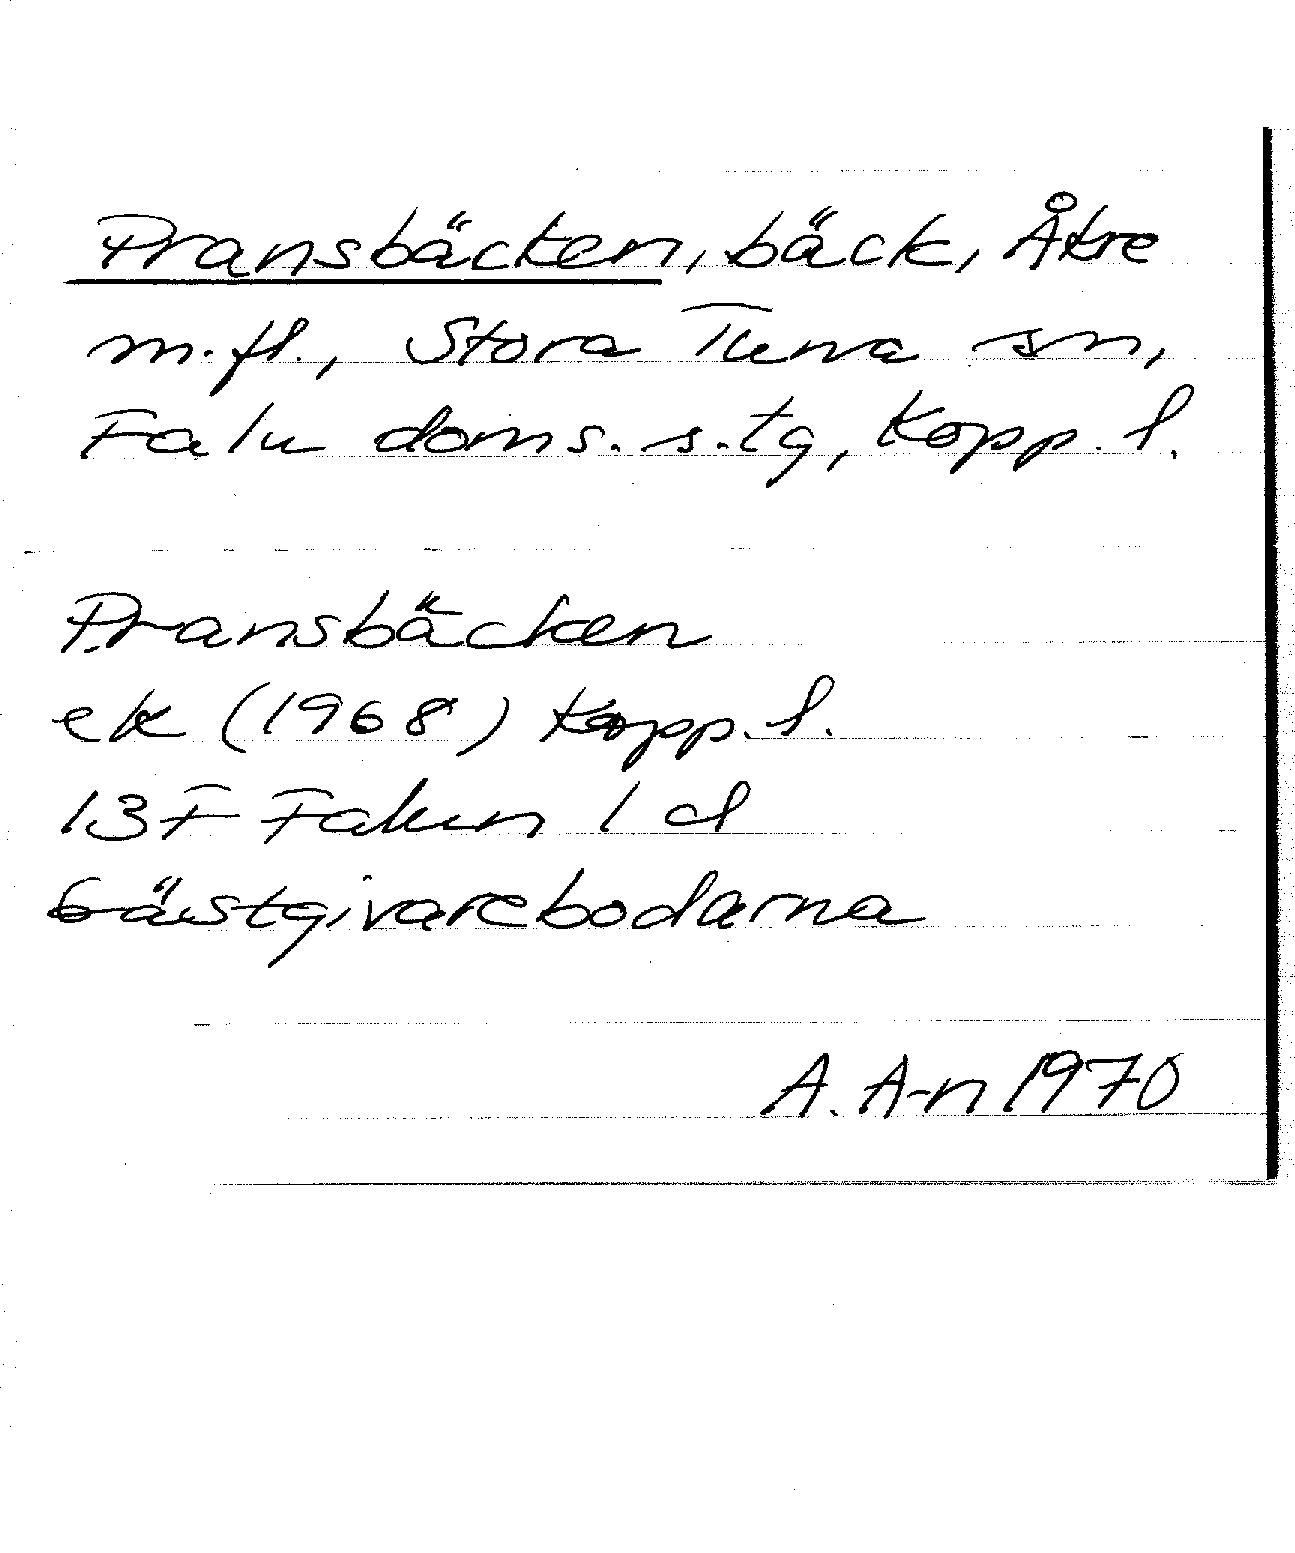 Pransbäcken, bäck, Åkre
m.fl., Stora Tuna sn,
Falu doms. s. tg, Kopp. l.
Pransbäcken
ek (1968) Kopp. l.
13F Falun 1 d
Gästgivarebodarna
A. A-n 1970